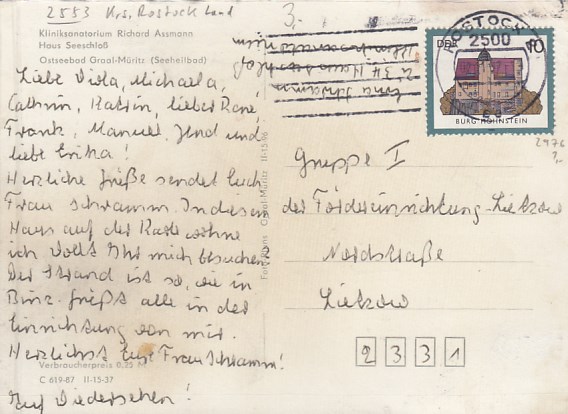 2553 Krs. Rostock Land
Kliniksanatorium Richard Assmann
Haus Seeschloß
Ostseebad Graal-Müritz (Seeheilbad)
Liebe Viola, Michaela,
Cathrin, Katrin, lieber René,
Frank, Manuel, Jend und
liebe Erika!
Herzliche Grüße sendet Euch
Frau Schramm. In diesem
Haus auf der Karte wohne
ich. Vollt Ihr mich besuchen?
Der Strand ist so, wie in
Binz. Grüßt alle in der
Einrichtung von mir.
Herzlichst Eure Frau Schramm!
Auf Wiedersehen!
Verbraucherpreis 0,25 M
C 619-87 II-15-37
Graal-Müritz
3,-
Erna Schramm
Z. 34 Haus Seeschloß
ROSTOCK
2500
DDR
70
BURG HOHNSTEIN
2976
Gruppe I
der Fördereinrichtung-Lietzow
Nordstraße
Lietzow
2331